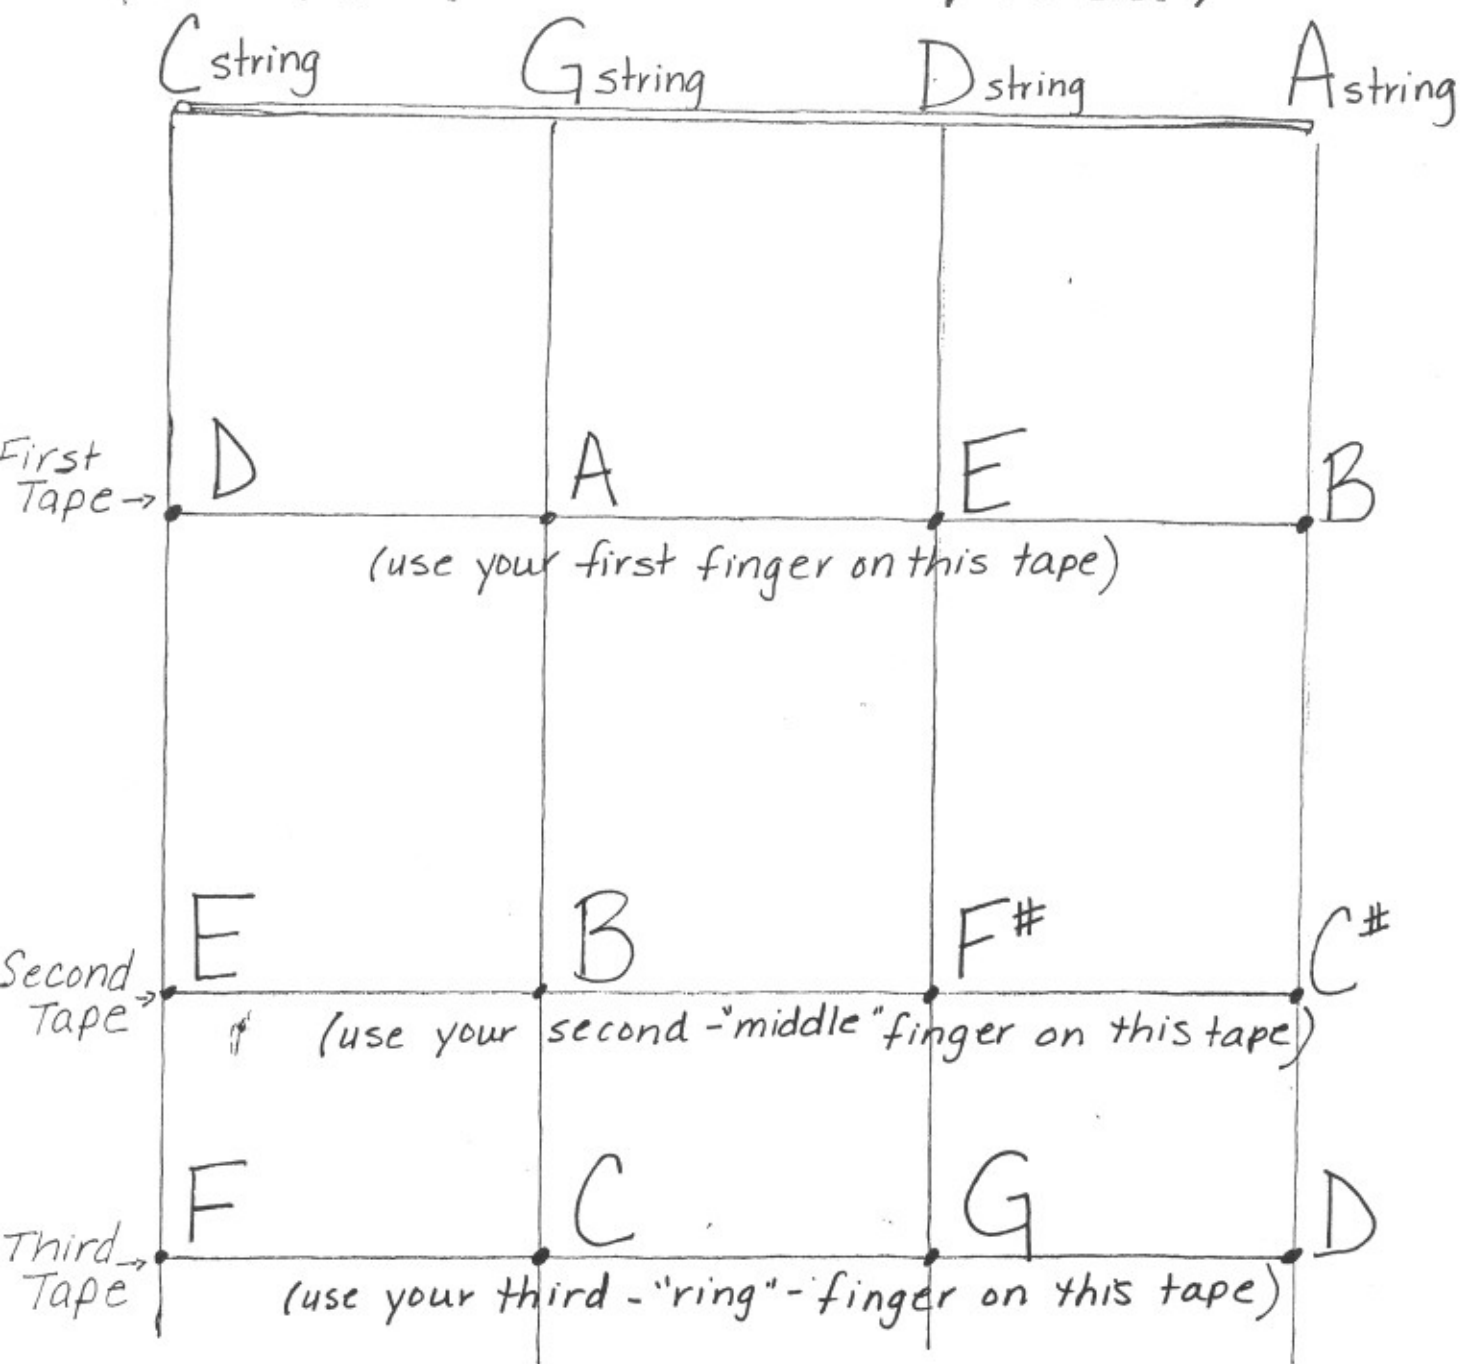 C string G string D string A string
First
Tape→ D A E B
(use your first finger on this tape)
E B F# C#
Second
Tape→
(use your second -"middle" finger on this tape)
F C G D
Third→
Tape
(use your third - "ring" - finger on this tape)